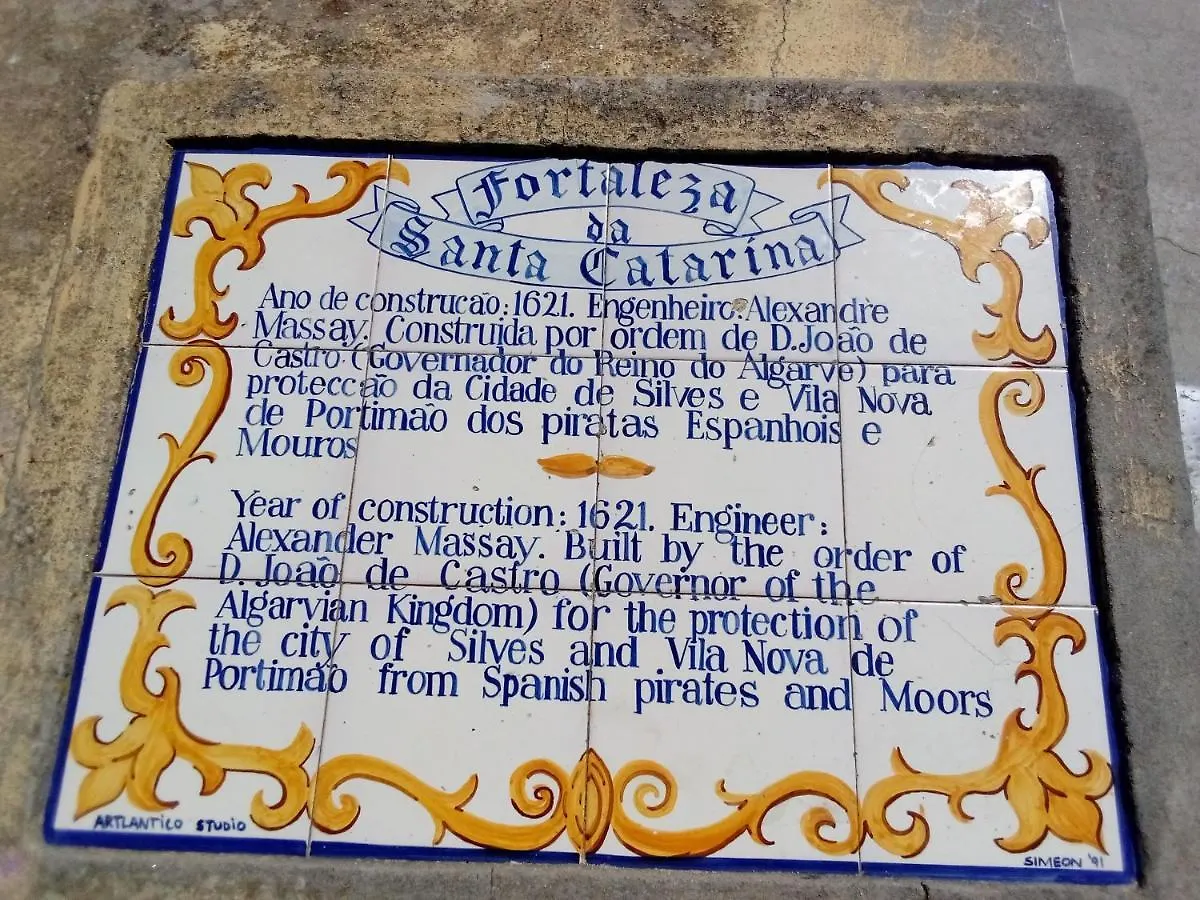 Fortaleza
da
Santa Catarina
Ano de construcão: 1621. Engenheiro: Alexandre
Massay. Construida por ordem de D. João de
Castro (Governador do Reino do Algarve) para
proteccão da Cidade de Silves e Vila Nova
de Portimão dos piratas Espanhois e
Mouros
Year of construction: 1621. Engineer:
Alexander Massay. Built by the order of
D. João de Castro (Governor of the
Algarvian Kingdom) for the protection of
the city of Silves and Vila Nova de
Portimão from Spanish pirates and Moors
ARTLANTICO STUDIO
SIMEON '91